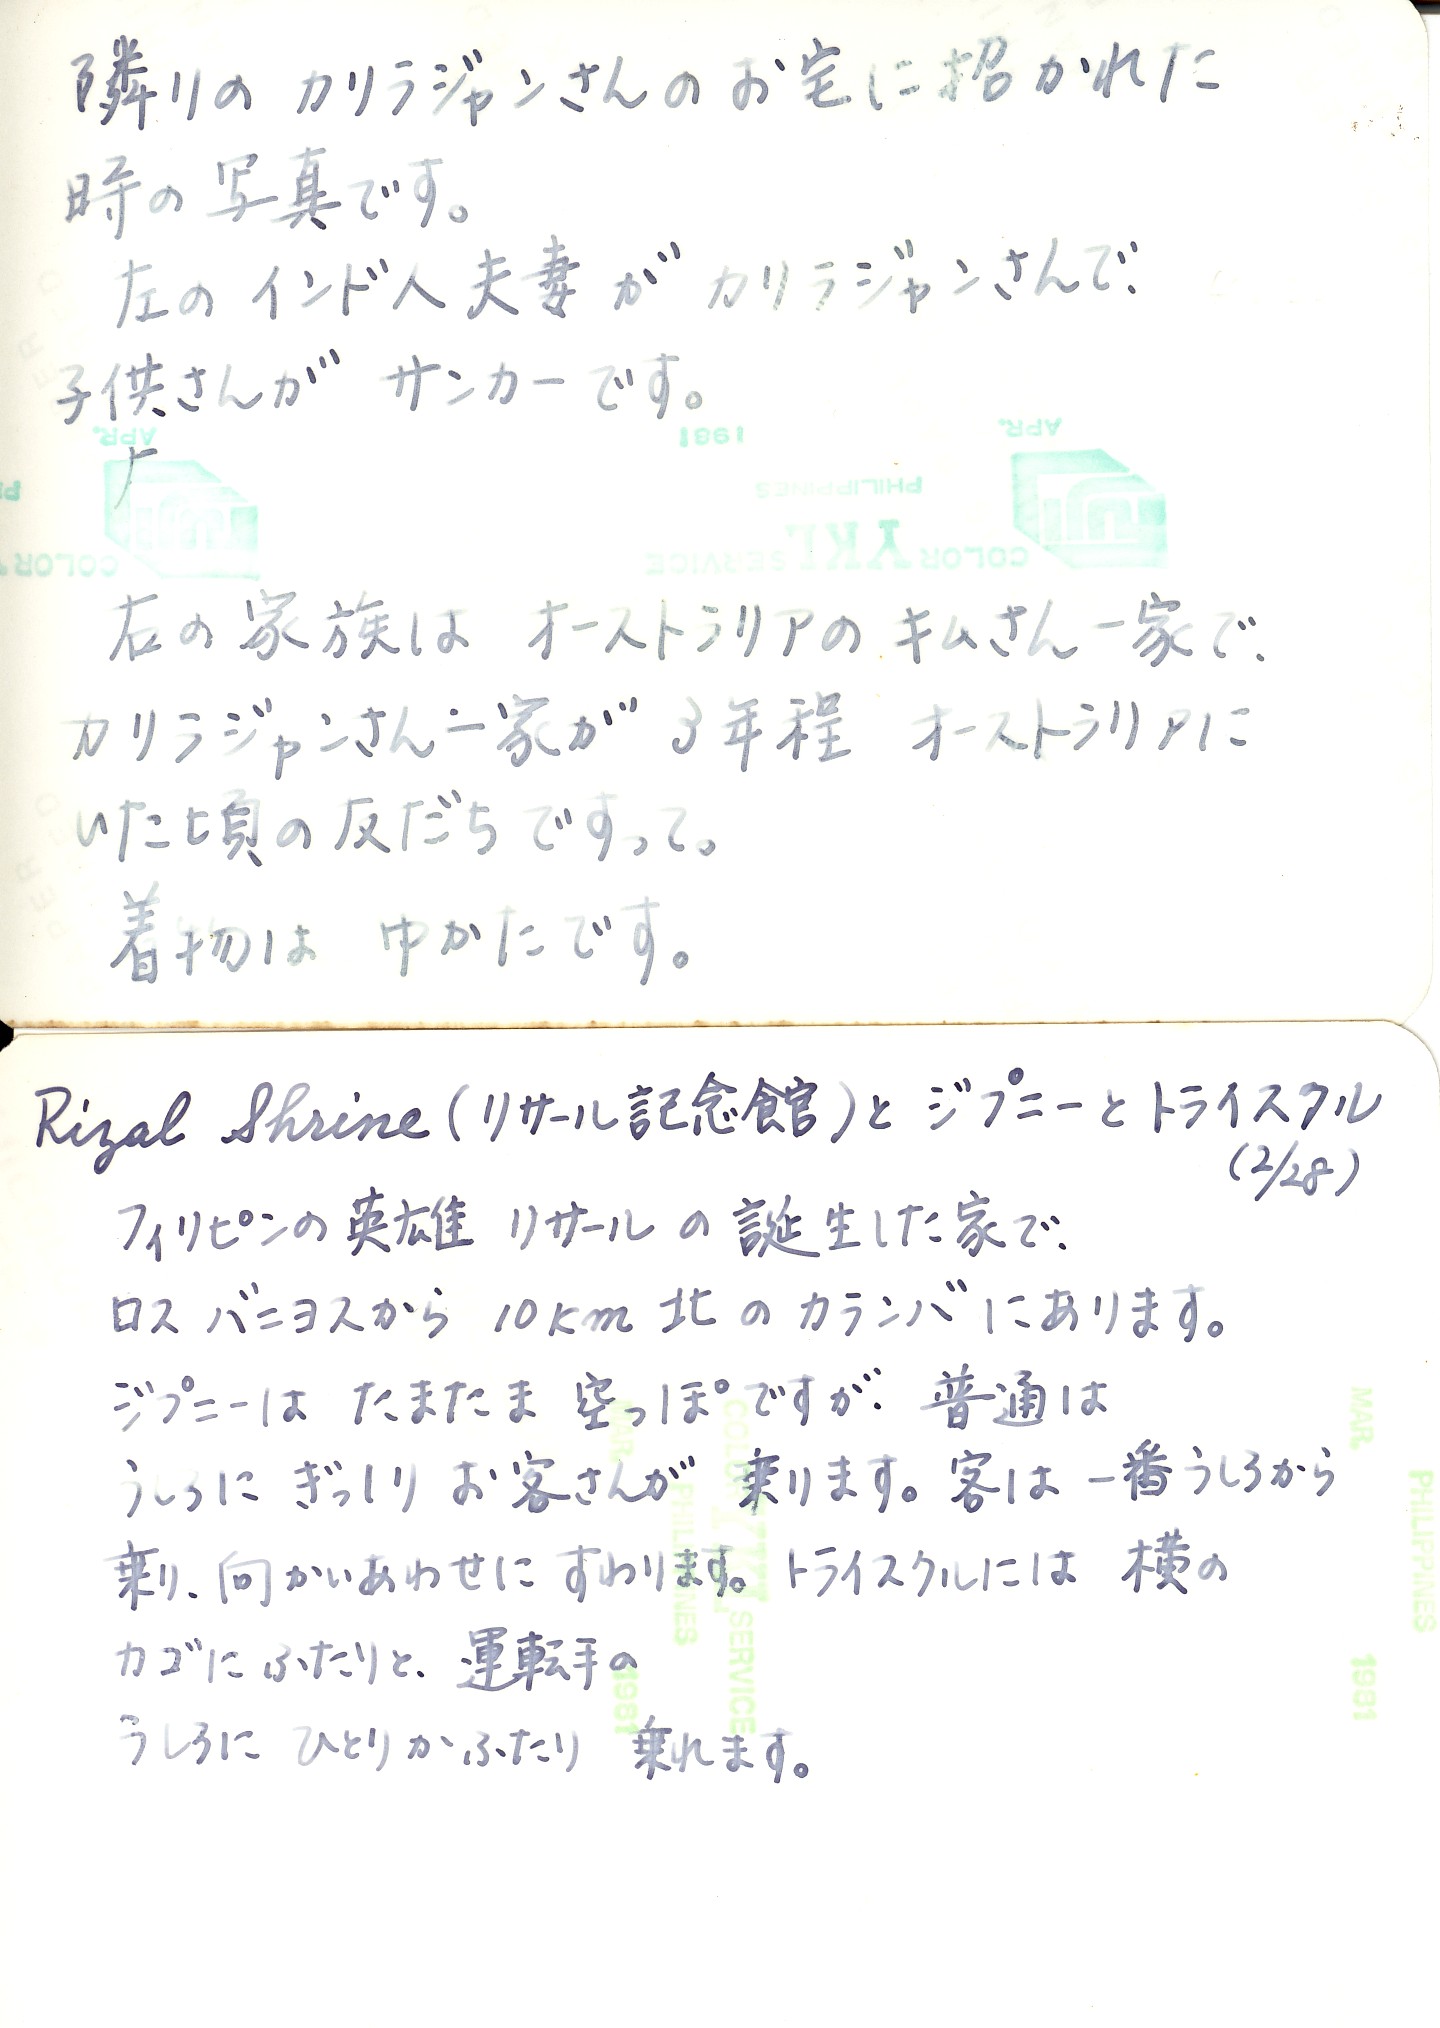 隣りの カリラジャンさんの お宅に招かれた
時の写真です。
左の インド人夫妻が カリラジャンさんで、
子供さんが サンカーです。
APR.
1981
APR.
PHILIPPINES
COLOR
COLOR YKL SERVICE
右の家族は オーストラリアの キムさん一家で、
カリラジャンさん一家が 3年程 オーストラリアに
いた頃の友だちですって。
着物は ゆかたです。
Rizal Shrine (リサール記念館)と ジプニーと トライスクル
(2/28)
フィリピンの英雄 リサールの誕生した家で、
ロスバニヨスから 10km 北の カランバにあります。
ジプニーは たまたま 空っぽですが、普通は
うしろに ぎっしり お客さんが 乗ります。客は 一番うしろから
乗り、向かいあわせに すわります。トライスクルには 横の
カゴに ふたりと、運転手の
うしろに ひとりか ふたり 乗れます。
MAR.
PHILIPPINES
1981
COLOR YKL SERVICE
MAR.
PHILIPPINES
1981